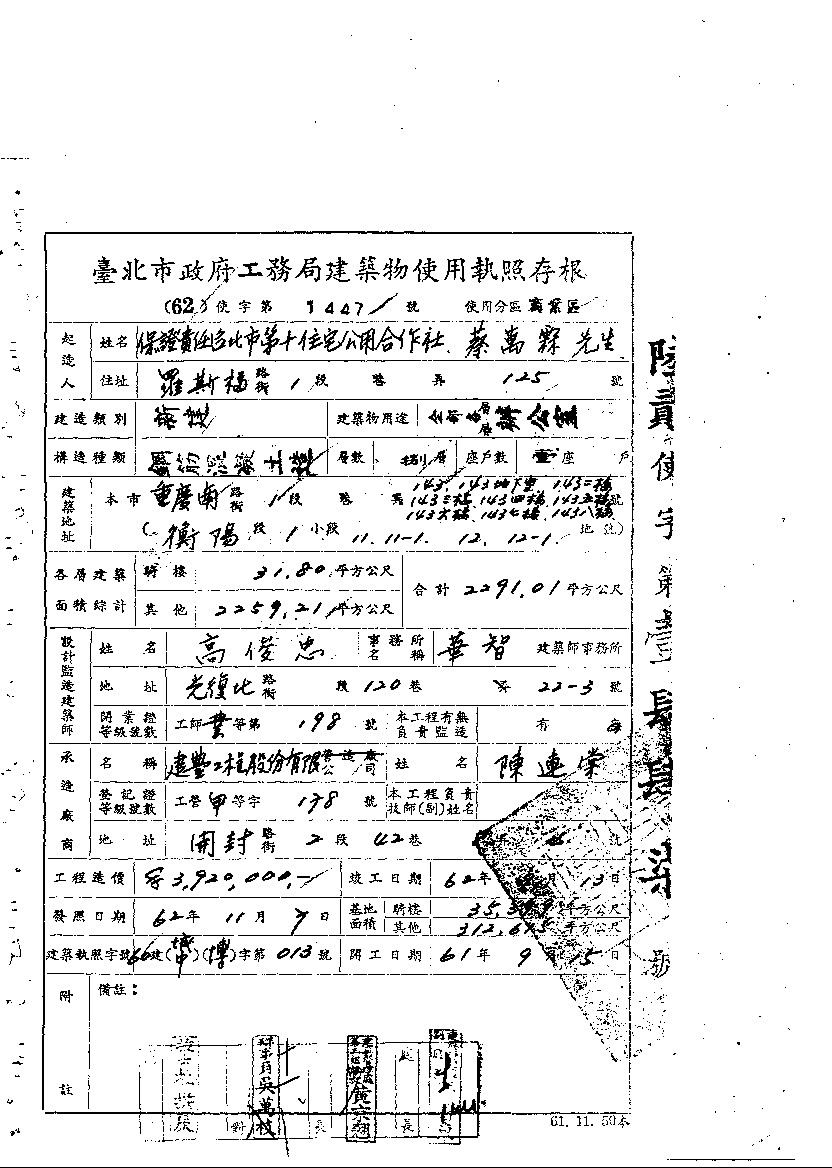 臺北市政府工務局建築物使用執照存根
(62)使字第 1447 號 使用分區 商業區
起造人 姓名 保證責任台北市第十住宅公用合作社、蔡萬霖先生
住址 羅斯福 路街 1 段 巷 弄 125 號
建造類別 建築物用途 全部各層辦公室
構造種類 鋼筋混凝土造 層數 捌層 座戶數 壹座 戶
建築地址 本市 重慶南 路街 1 段 巷 弄 143、143地下室、143二樓
143三樓、143四樓、143五樓 號
143六樓、143七樓、143八樓
(衡陽 段 1 小段 11. 11-1. 12. 12-1. 地號)
各層建築面積綜計 騎樓 31.80 平方公尺 合計 2291.01 平方公尺
其他 2259.21 平方公尺
設計監造建築師 姓名 高俊忠 事務所名稱 華智 建築師事務所
地址 光復北 路街 段 120 巷 弄 22-3 號
開業證等級號數 工師 業 等第 198 號 本工程有無負責監造 有
承造廠商 名稱 建豐工程股份有限 營造廠公司 姓名 陳連棠
登記證等級號數 工營 甲 等字 178 號 本工程負責技師(副)姓名
地址 開封 路街 2 段 42 巷
工程造價 3,920,000.- 竣工日期 62 年 月 13 日
發照日期 62 年 11 月 7 日 基地面積 騎樓 平方公尺
其他 平方公尺
建築執照字號 60 建( )( )字第 013 號 開工日期 61 年 9 月 15 日
附註 備註：
吳萬枝
長
長
61. 11. 50本
陸貳使字第壹肆肆柒號